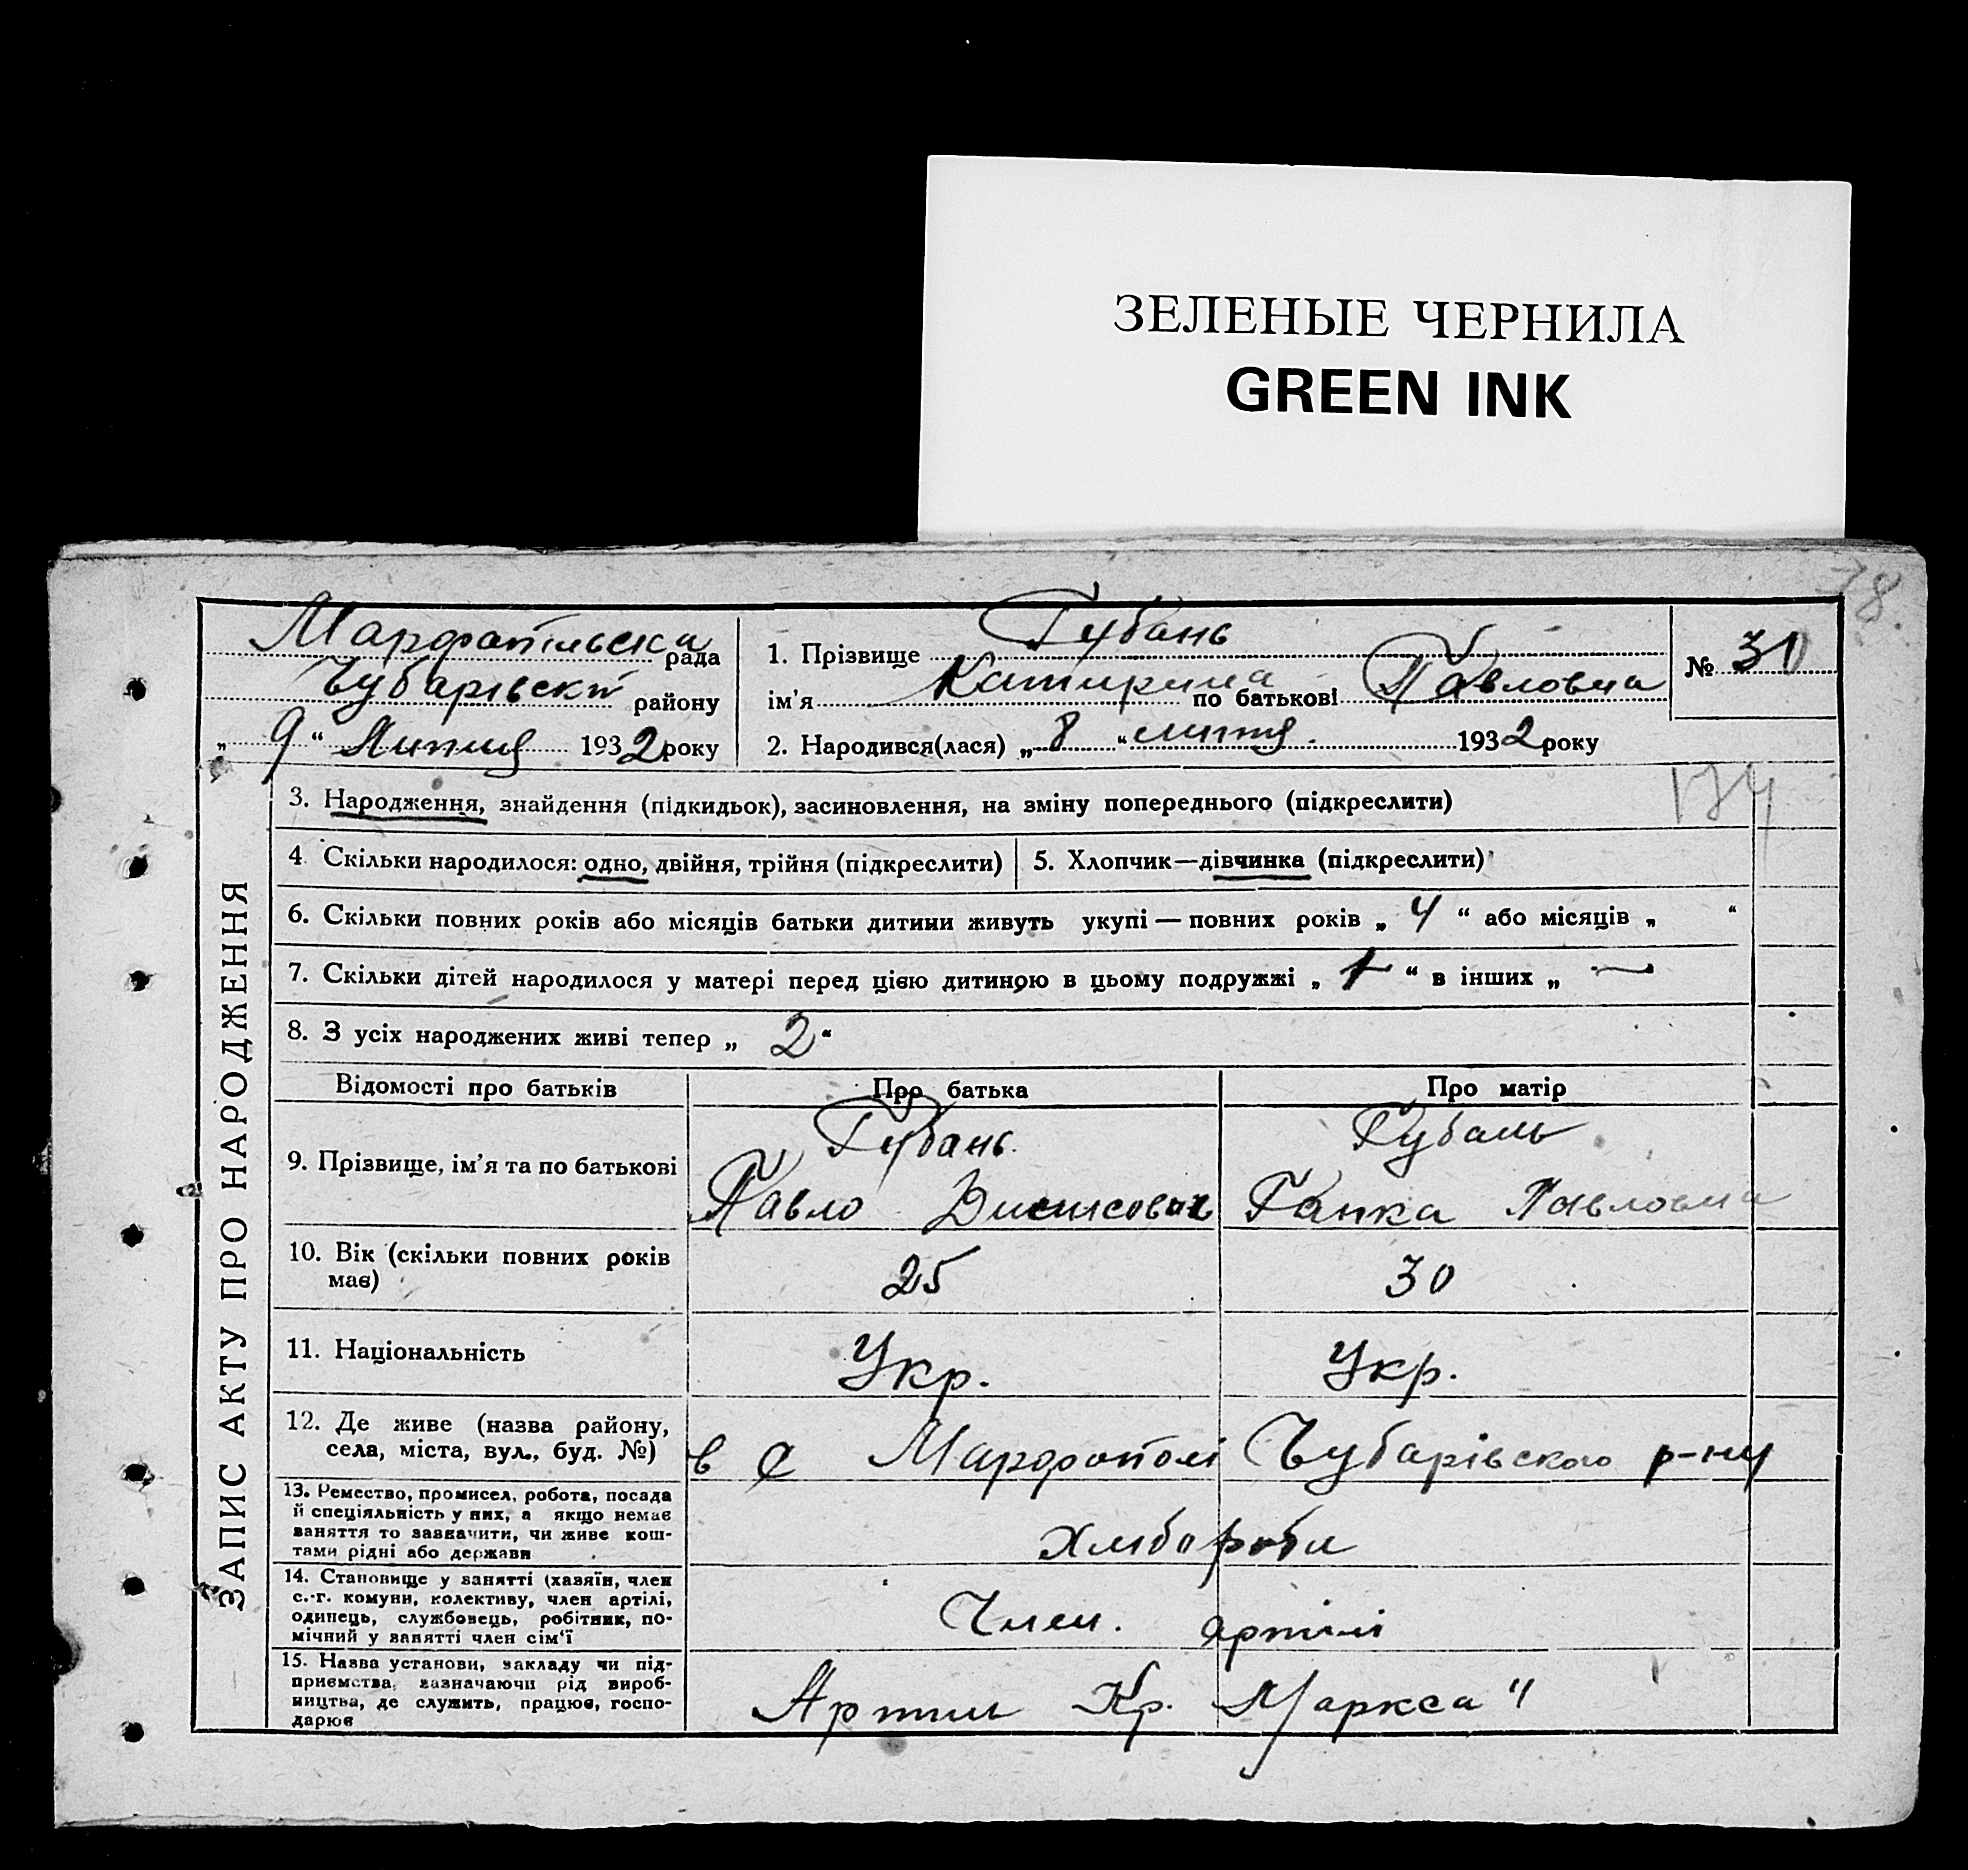 ЗЕЛЕНЫЕ ЧЕРНИЛА
GREEN INK
78.
Марфопільська рада
Чубарівськ району
„ 9 “ Липня 1932 року
1. Прізвище Губань
ім’я Катирина по батькові Павловна
2. Народився(лася) „ 8 “ липня. 1932 року
№ 30
ЗАПИС АКТУ ПРО НАРОДЖЕННЯ
3. Народження, знайдення (підкидьок), засиновлення, на зміну попереднього (підкреслити)
174
4. Скільки народилося: одно, двійня, трійня (підкреслити)
5. Хлопчик—дівчинка (підкреслити)
6. Скільки повних років або місяців батьки дитини живуть укупі — повних років „ 4 “ або місяців „ “
7. Скільки дітей народилося у матері перед цією дитиною в цьому подружжі „ 1 “ в інших „ —
8. З усіх народжених живі тепер „ 2 “
Відомості про батьків
Про батька
Про матір
9. Прізвище, ім’я та по батькові
Губань
Павло Дисисович
Губань
Ганка Павловна
10. Вік (скільки повних років
має)
25
30
11. Національність
Укр.
Укр.
12. Де живе (назва району,
села, міста, вул., буд. №)
в с Марфополі Чубарівсько р-ну
13. Ремество, промисел, робота, посада
й спеціяльність у них, а якщо немає
заняття то зазначити, чи живе кош-
тами рідні або держави
Хлібороби
14. Становище у занятті (хазяїн, член
с.-г. комуни, колективу, член артілі,
одинець, службовець, робітник, по-
мічний у занятті член сім’ї
Член. артілі
15. Назва установи, закладу чи під-
приємства, зазначаючи рід вироб-
ництва, де служить, працює, госпо-
дарює
Артіль Кр. Маркса "